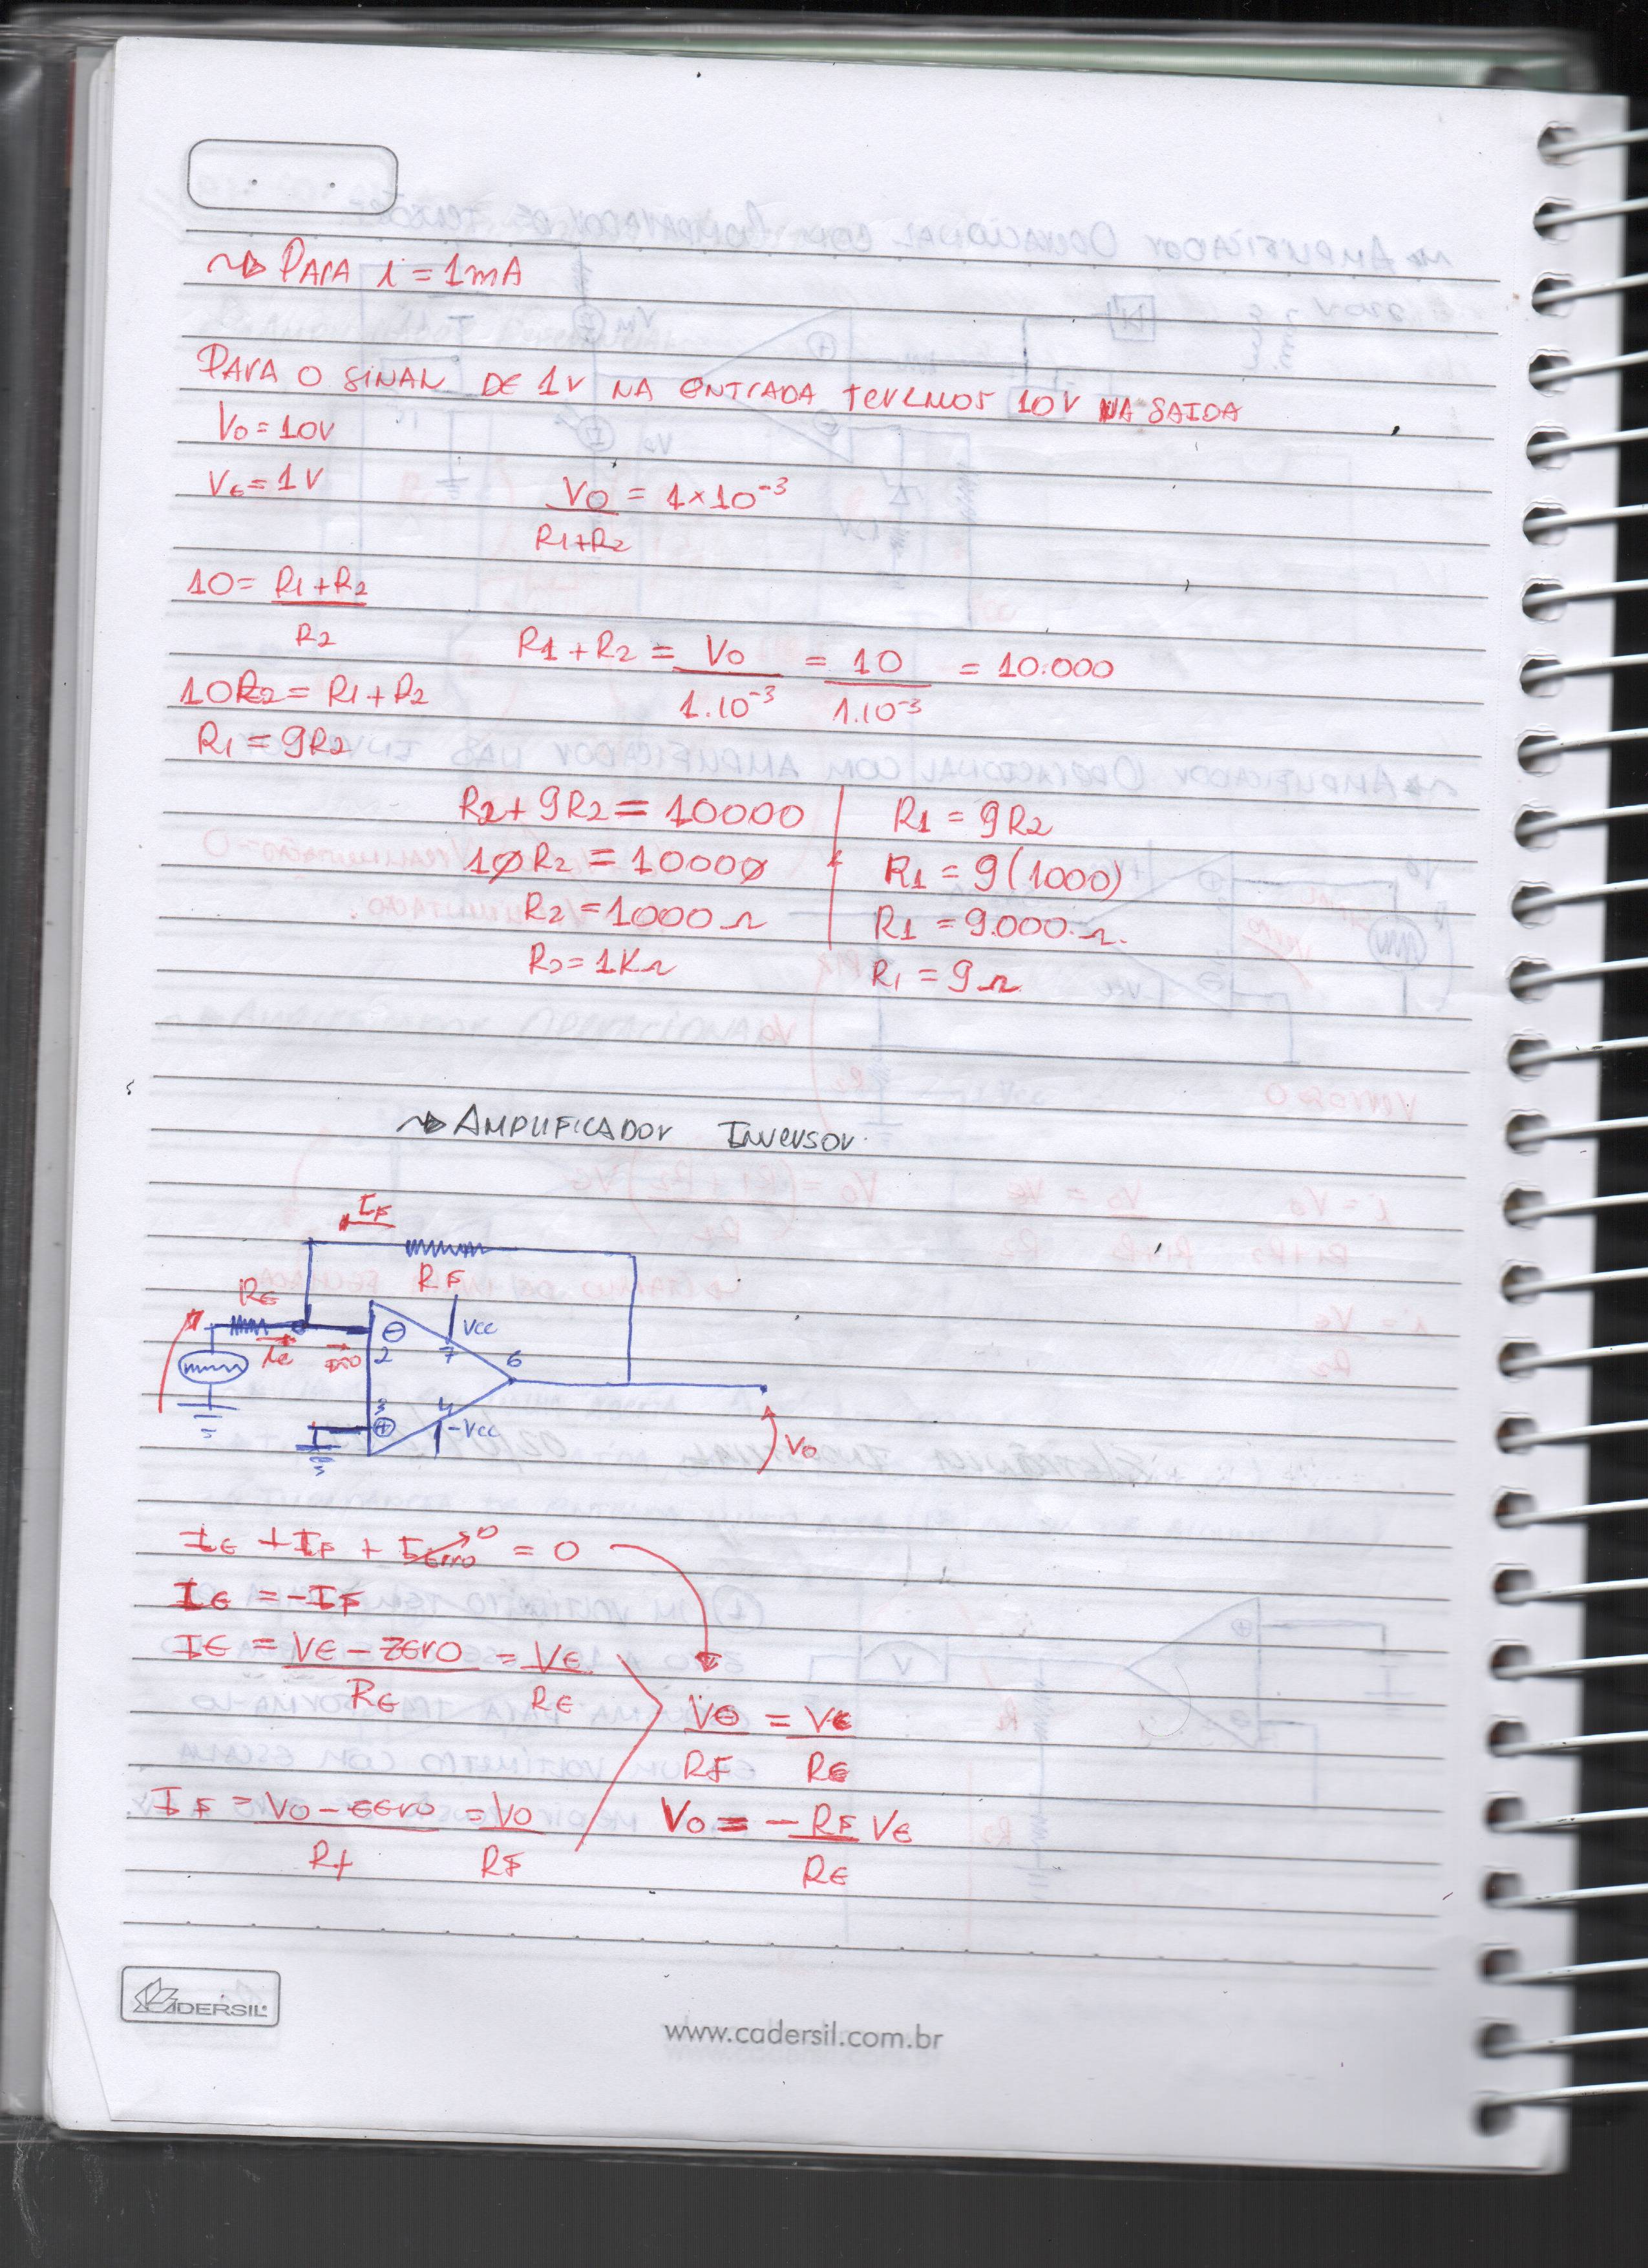 ~> PARA i = 1mA
PARA O SINAL DE 1V NA ENTRADA TEREMOS 10V NA SAIDA
Vo = 10V
Ve = 1V
Vo/(R1+R2) = 1×10⁻³
10 = (R1+R2)/R2
R1+R2 = Vo/(1.10⁻³) = 10/(1.10⁻³) = 10.000
10R2 = R1+R2
R1 = 9R2
R2+9R2 = 10000
10R2 = 10000
R2 = 1000Ω
R2 = 1KΩ
R1 = 9R2
R1 = 9(1000)
R1 = 9.000.Ω.
R1 = 9Ω
~> AMPLIFICADOR INVERSOR.
IF
RF
RE
Vcc
ie
2
7
6
3
4
-Vcc
Vo
IE + IF + IErro⁰ = 0
IE = -IF
IE = (VE - ZERO)/RE = VE/RE
Vo/RF = VE/RE
IF = (Vo - zero)/Rf = Vo/RF
Vo = -RF/RE VE
CADERSIL
www.cadersil.com.br